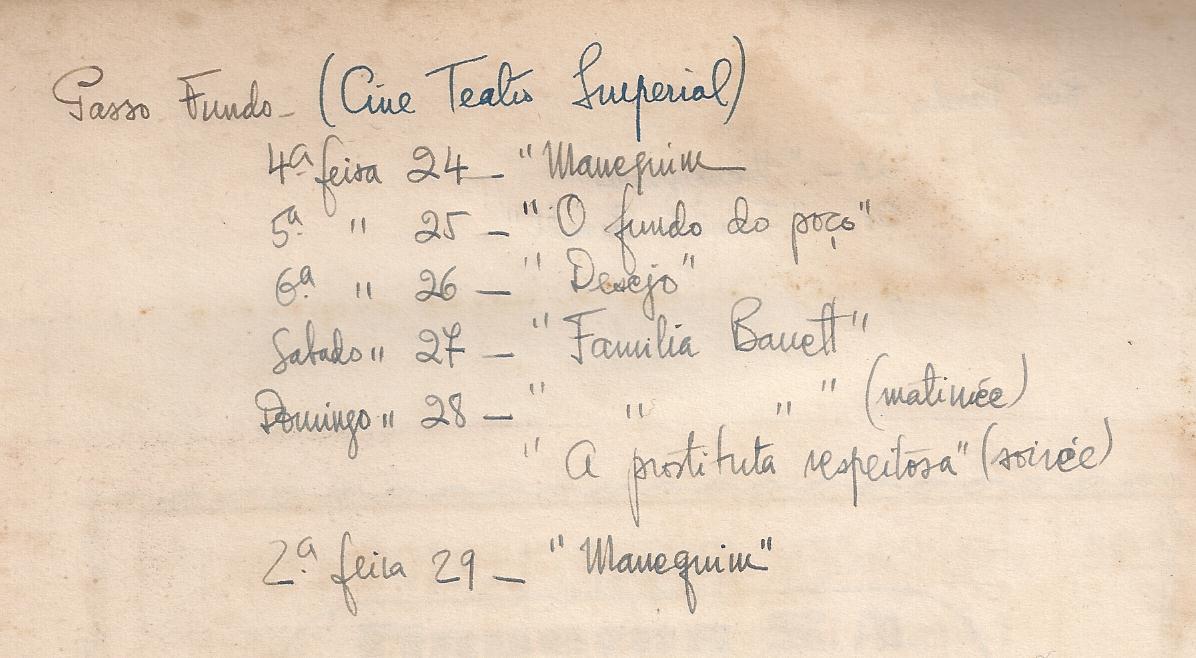 Passo Fundo - (Cine Teatro Imperial)
4ª feira 24 - "Manequim
5ª " 25 - "O fundo do poço"
6ª " 26 - "Desejo"
Sabado " 27 - "Familia Barrett"
Domingo " 28 - " " " " (matinée)
"A prostituta respeitosa" (soirée)
2ª feira 29 - "Manequim"